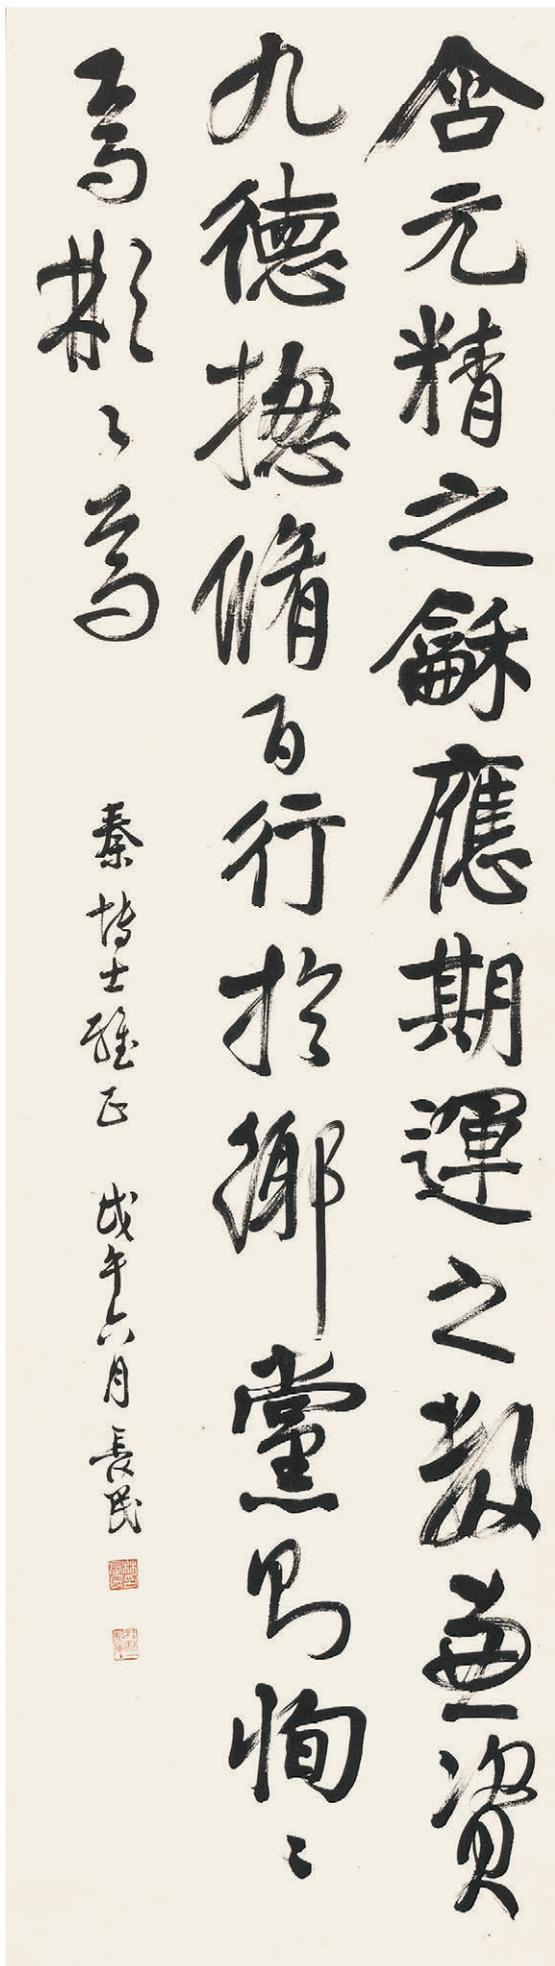 含元精之龢應期運之數兼資
九德揔脩百行於鄉黨則恂〻
焉彬〻焉
秦博士雅正 戊午六月 長民